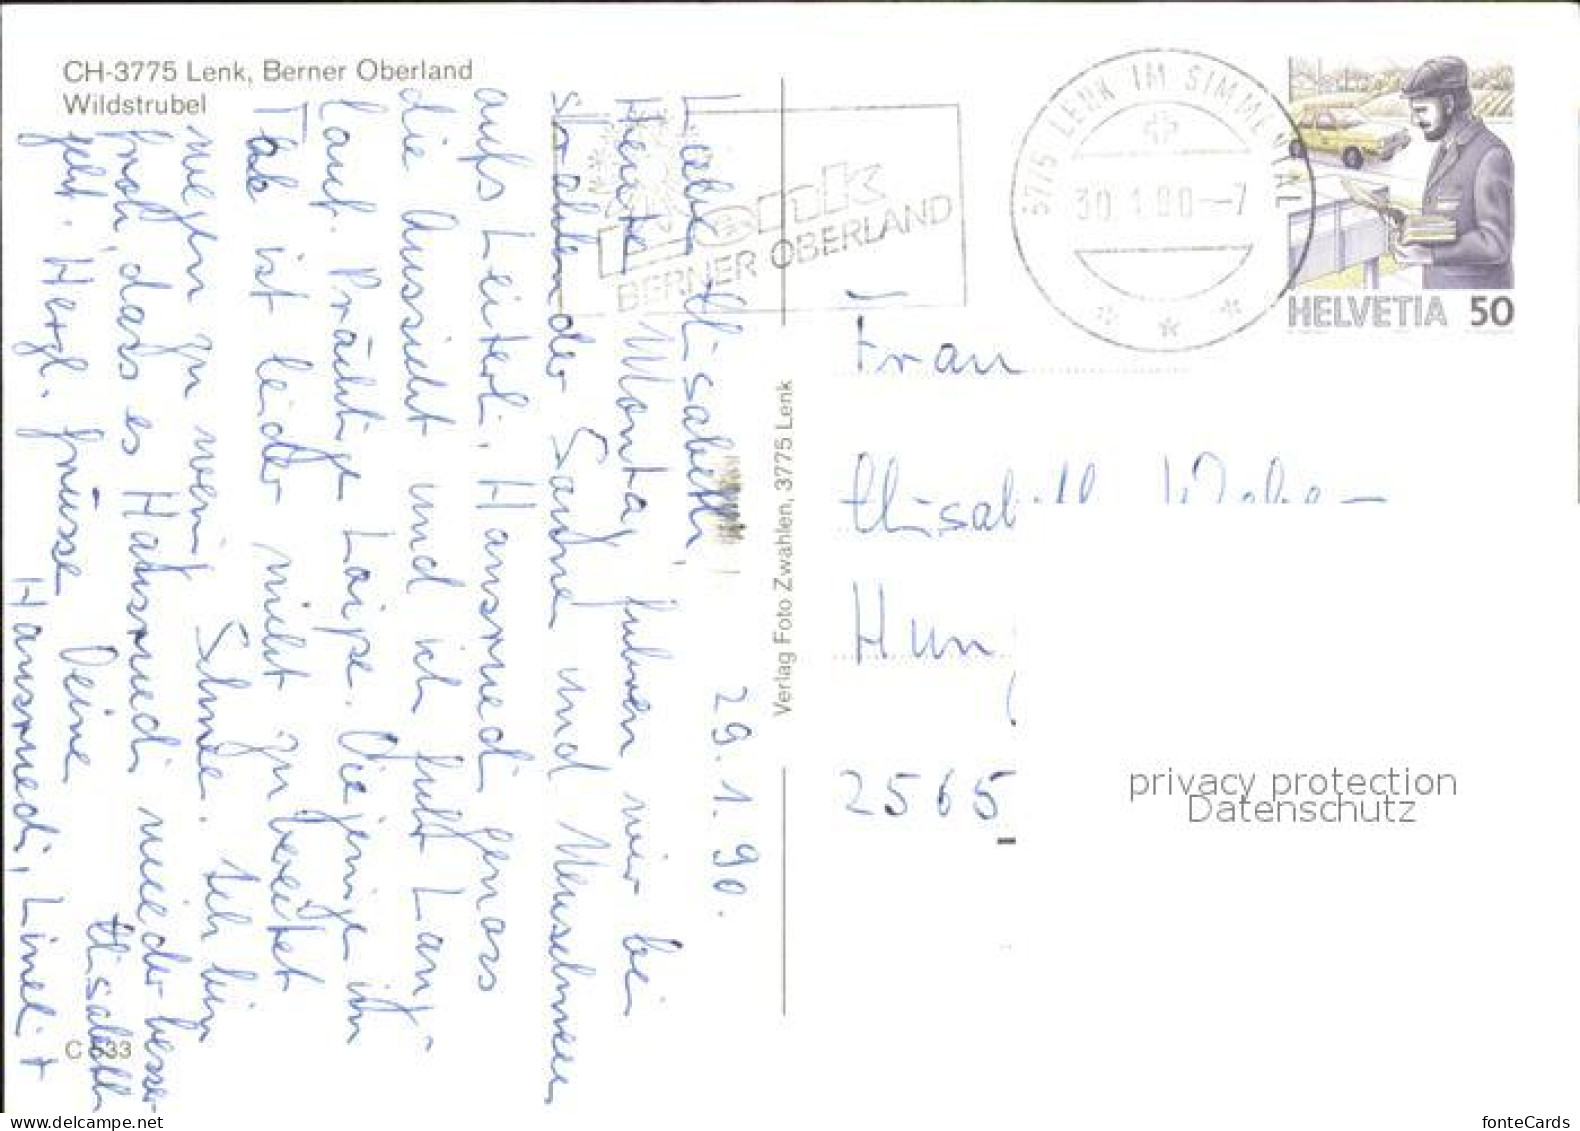 CH-3775 Lenk, Berner Oberland
Wildstrubel
29. 1. 90.
Liebe Elisabeth,
Heute Montag fuhren wir bei
strahlender Sonne und Neuschnee
aufs Leiterli, Hansruedi genoss
die Aussicht und ich fuhr Lang-
lauf. Prächtige Loipe. Diejenige im
Tal ist leider nicht zu bereitet
wegen zu wenig Schnee. Ich bin
froh, dass es Hansruedi wieder besser
geht. Herzl. Grüsse Deine Elisabeth
Hansruedi, Lineli +
C 533
Verlag Foto Zwahlen, 3775 Lenk
Lenk
BERNER OBERLAND
3775 LENK IM SIMMENTAL
30.1.90--7
HELVETIA 50
Frau
Elisabeth Weber
Hun
2565
privacy protection
Datenschutz
fonteCards